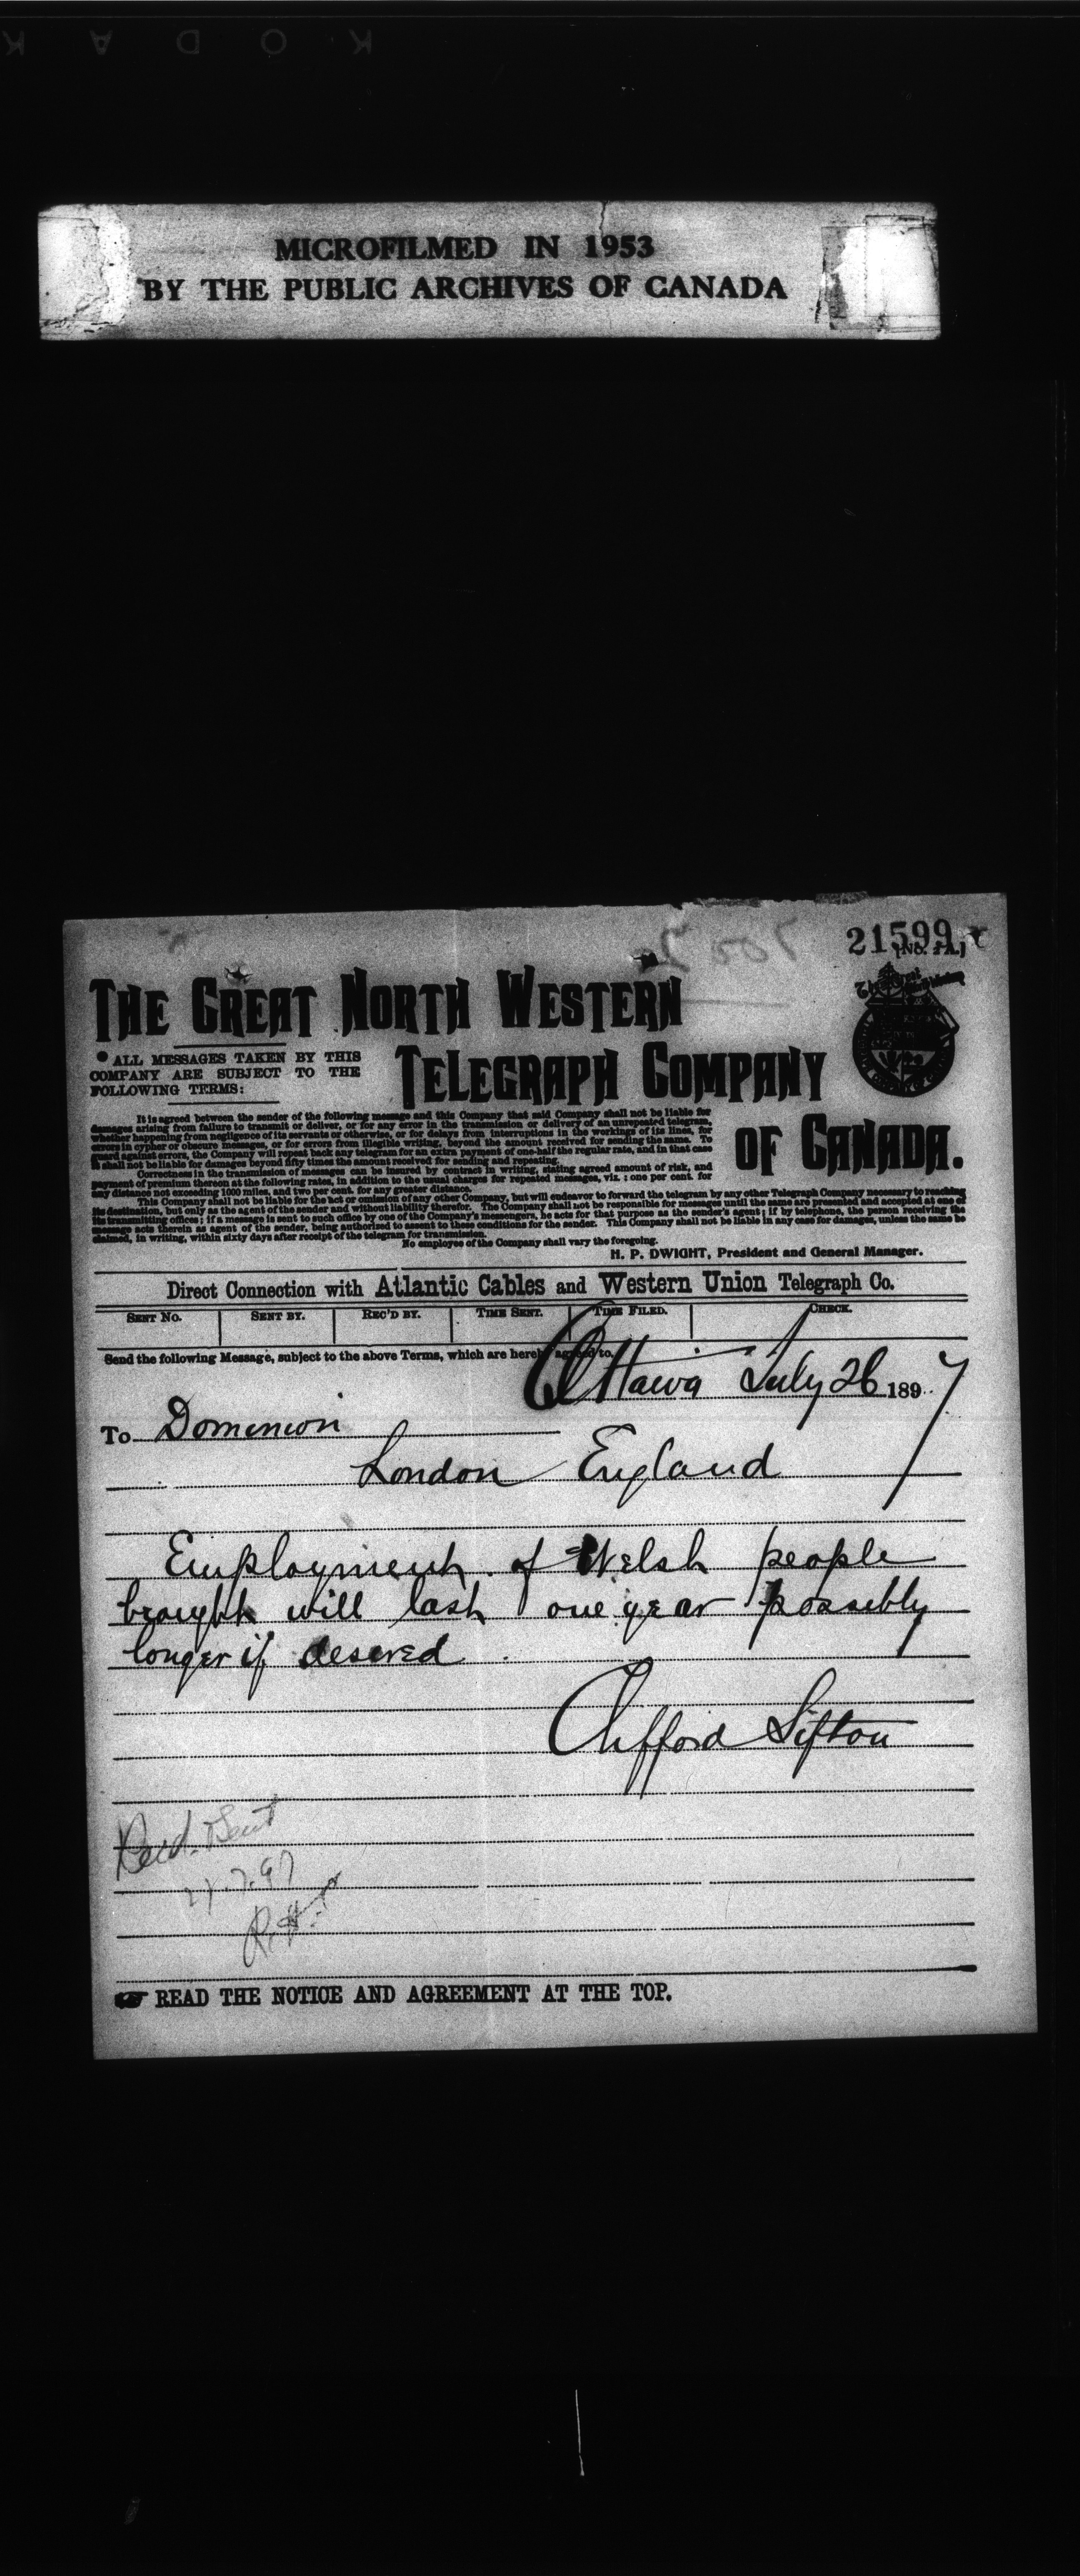 KODAK
MICROFILMED IN 1953
BY THE PUBLIC ARCHIVES OF CANADA
21599
[No. 1A.]
THE GREAT NORTH WESTERN
TELEGRAPH COMPANY
OF CANADA.
ALL MESSAGES TAKEN BY THIS
COMPANY ARE SUBJECT TO THE
FOLLOWING TERMS:
It is agreed between the sender of the following message and this Company that said Company shall not be liable for
damages arising from failure to transmit or deliver, or for any error in the transmission or delivery of an unrepeated telegram,
whether happening from negligence of its servants or otherwise, or for delays from interruptions in the workings of its lines, for
errors in cypher or obscure messages, or for errors from illegible writing, beyond the amount received for sending the same. To
guard against errors, the Company will repeat back any telegram for an extra payment of one-half the regular rate, and in that case
it shall not be liable for damages beyond fifty times the amount received for sending and repeating.
Correctness in the transmission of messages can be insured by contract in writing, stating agreed amount of risk, and
payment of premium thereon at the following rates, in addition to the usual charges for repeated messages, viz. : one per cent. for
any distance not exceeding 1000 miles, and two per cent. for any greater distance.
This Company shall not be liable for the act or omission of any other Company, but will endeavor to forward the telegram by any other Telegraph Company necessary to reaching
its destination, but only as the agent of the sender and without liability therefor. The Company shall not be responsible for messages until the same are presented and accepted at one of
its transmitting offices ; if a message is sent to such office by one of the Company's messengers, he acts for that purpose as the sender's agent ; if by telephone, the person receiving the
message acts therein as agent of the sender, being authorized to assent to these conditions for the sender. This Company shall not be liable in any case for damages, unless the same be
claimed, in writing, within sixty days after receipt of the telegram for transmission.
No employee of the Company shall vary the foregoing.
H. P. DWIGHT, President and General Manager.
Direct Connection with Atlantic Cables and Western Union Telegraph Co.
SENT NO. SENT BY. REC'D BY. TIME SENT. TIME FILED. CHECK.
Send the following Message, subject to the above Terms, which are hereby agreed to.
Ottawa July 26 1897
To Dominion
London England
Employment of Welsh people
brought will last one year possibly
longer if desired.
Clifford Sifton
Recd. Sent
27.7.97
READ THE NOTICE AND AGREEMENT AT THE TOP.